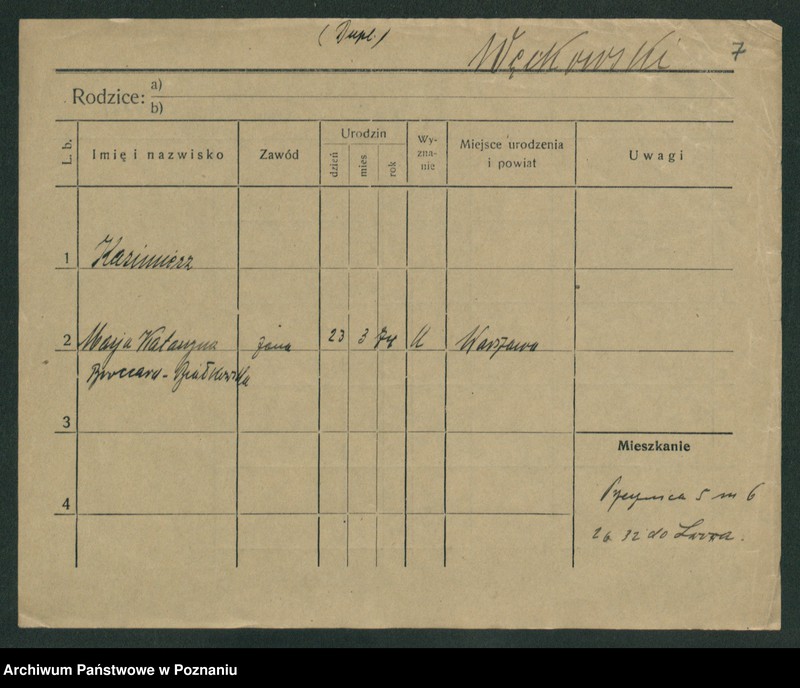 (Dupl.)
Węckowski
7
Rodzice: a)
b)
L. b.
Imię i nazwisko
Zawód
Urodzin
dzień
mies
rok
Wy-
zna-
nie
Miejsce urodzenia
i powiat
Uwagi
1 Kazimierz
2 Marja Katarzyna żona 23 3 Warszawa
Broccard-Działkowska
3
Mieszkanie
5 m 6
4
26. 32 do Lwowa.
Archiwum Państwowe w Poznaniu